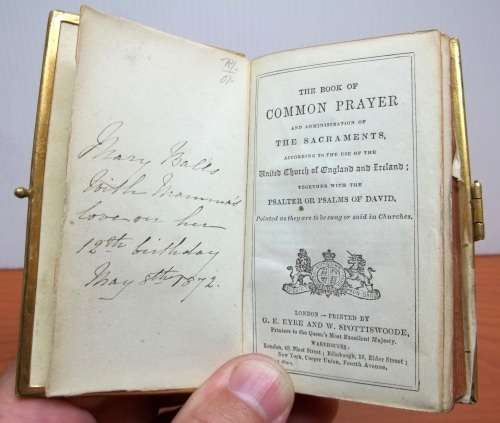 Mary Balls
With Mamma's
love on her
12th birthday
May 8th 1872.
THE BOOK OF
COMMON PRAYER
AND ADMINISTRATION OF
THE SACRAMENTS,
ACCORDING TO THE USE OF THE
United Church of England and Ireland;
TOGETHER WITH THE
PSALTER OR PSALMS OF DAVID,
Pointed as they are to be sung or said in Churches.
LONDON:—PRINTED BY
G. E. EYRE AND W. SPOTTISWOODE,
Printers to the Queen's Most Excellent Majesty.
WAREHOUSE:
London, 43, Fleet Street; Edinburgh, 23, Elder Street;
New York, Cooper Union, Fourth Avenue.